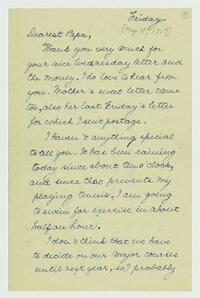 Friday
Dearest Papa,
Thank you very much for
your nice Wednesday letter and
the money. I do love to hear from
you. Mother's sweet letter came
too, also her last Friday's letter
for which I sent postage.
I haven't anything special
to tell you. It has been raining
today since about ten o'clock,
and since that prevents my
playing tennis, I am going
to swim for exercise in about
half an hour.
I don't think that we have
to decide on our Major courses
until next year, so I probably